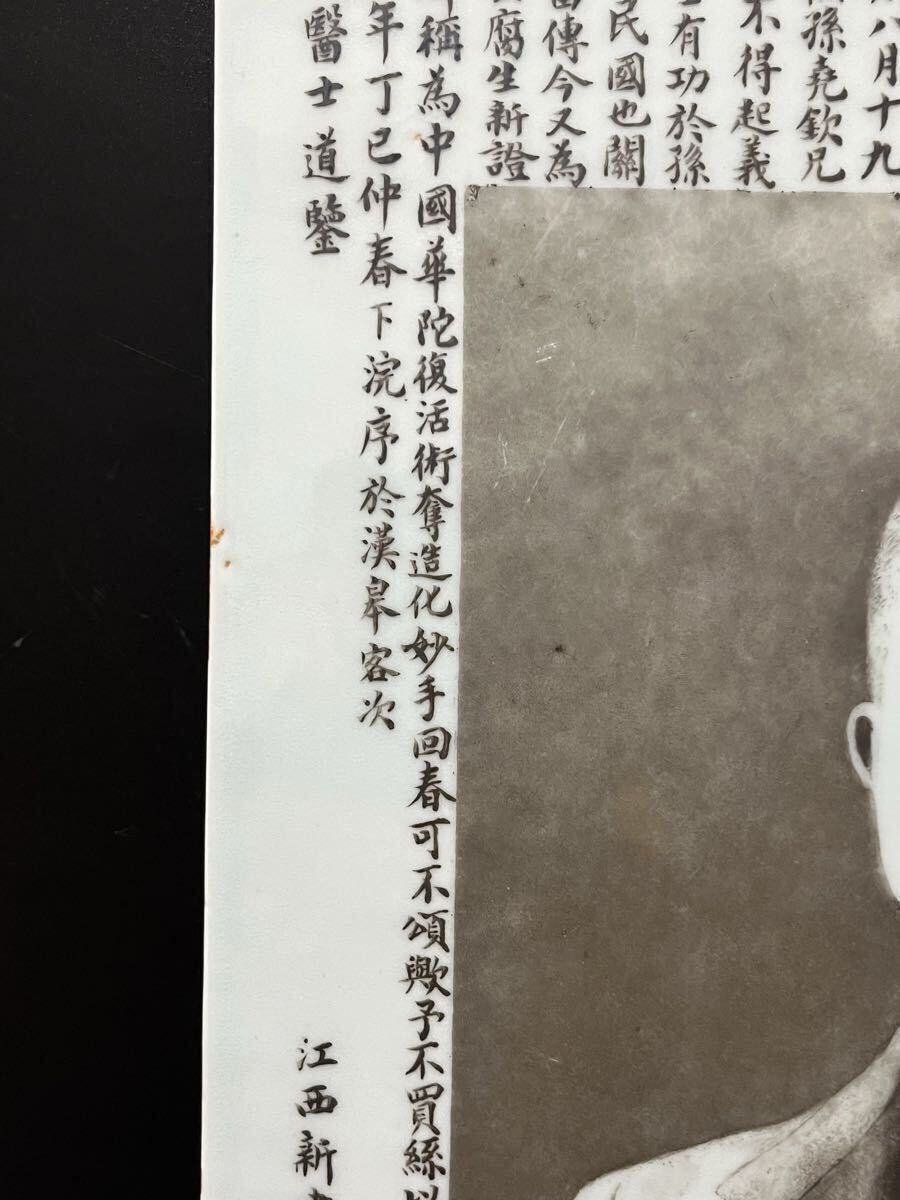 八月十九
孫堯欽兄
不得起義
有功於孫
民國也關
傳今又為
腐生新證
稱為中國華陀復活術奪造化妙手回春可不頌歟予不買絲
年丁巳仲春下浣序於漢皋客次
醫士道鑒
江西新